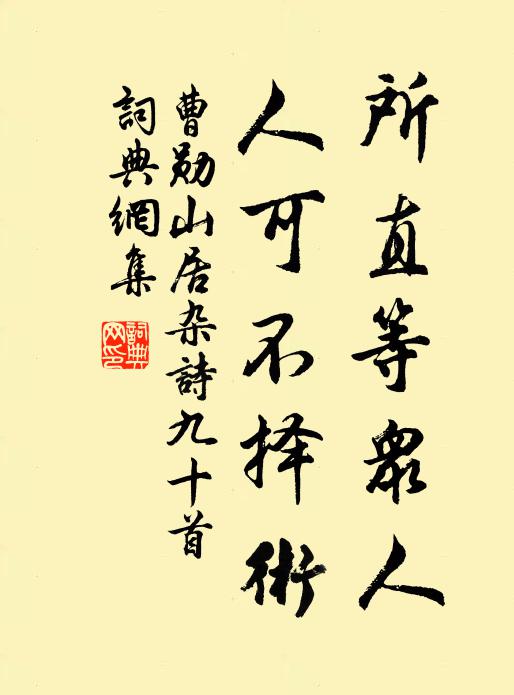 所直等眾人
人可不择術
曹勛山居杂詩九十首
詞典網集
詞典網印